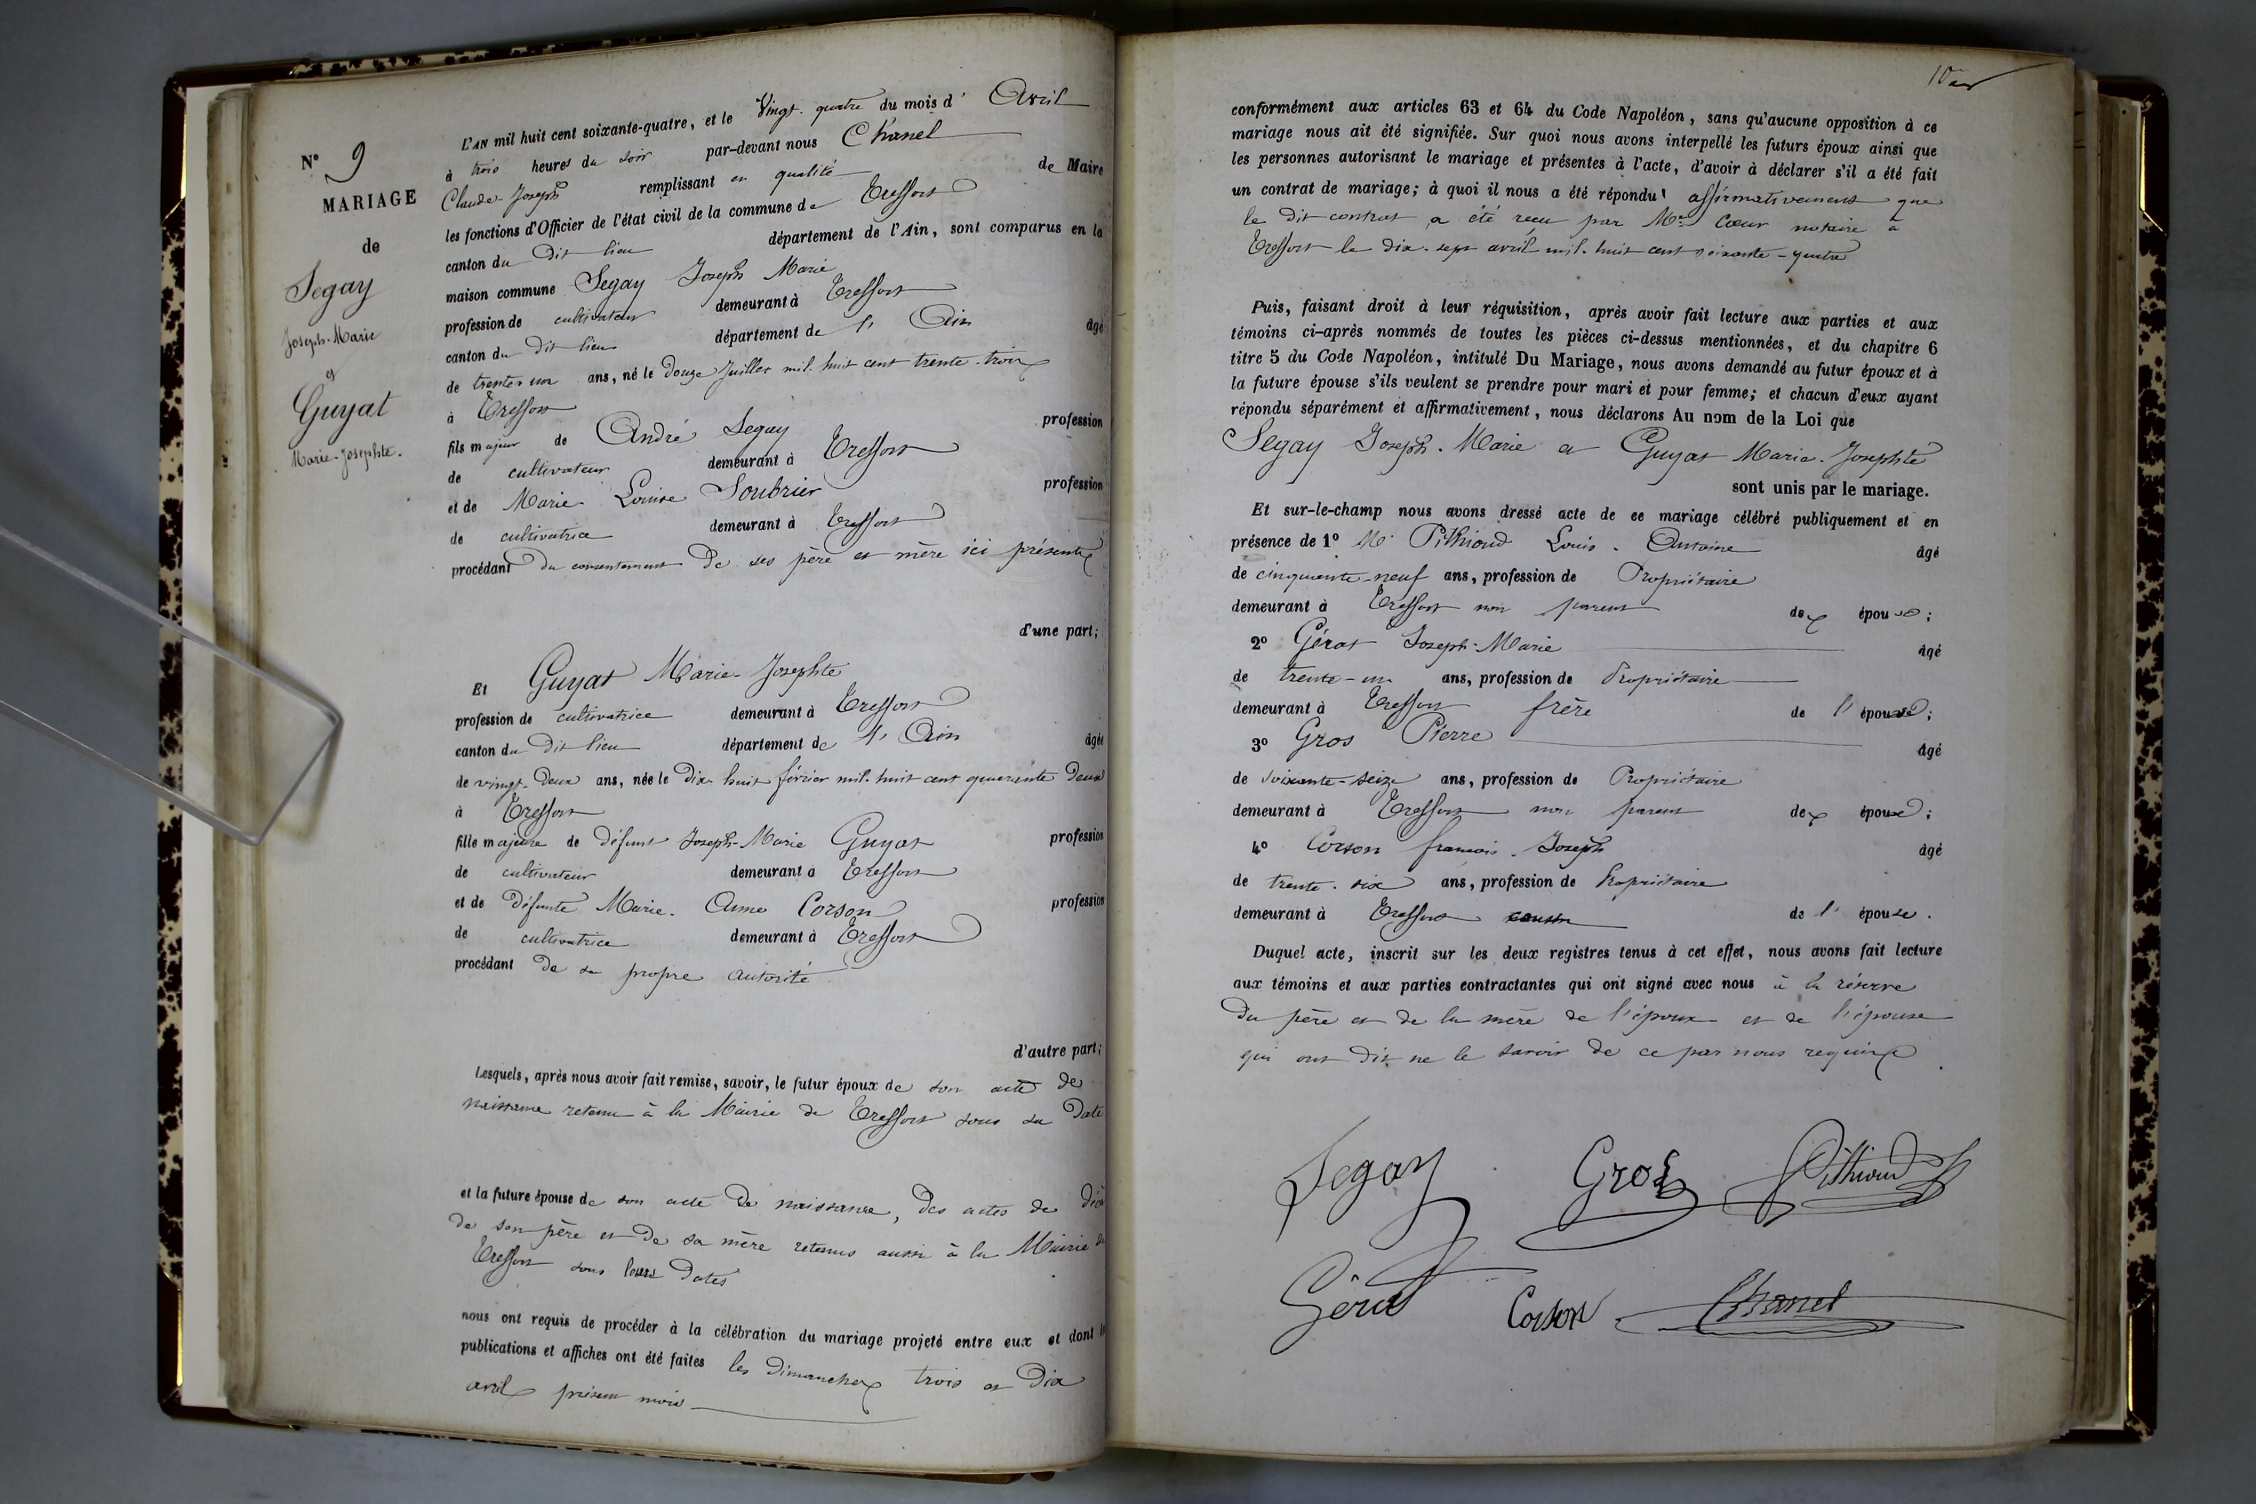 N° 9
MARIAGE
de
Segay
Joseph-Marie
et
Guyat
Marie-Josephte.
L'AN mil huit cent soixante-quatre, et le Vingt-quatre du mois d' Avril
à trois heures du soir par-devant nous Chanel
Claude-Joseph remplissant en qualité de Maire
les fonctions d'Officier de l'état civil de la commune de Treffort
canton du dit lieu département de l'Ain, sont comparus en la
maison commune Segay Joseph Marie
profession de cultivateur demeurant à Treffort
canton du dit lieu département de l' Ain âgé
de trente-un ans, né le douze Juillet mil-huit cent trente-trois
à Treffort
fils majeur de André Segay profession
de cultivateur demeurant à Treffort
et de Marie Louise Soubrier profession
de cultivatrice demeurant à Treffort
procédant du consentement de ses père et mère ici présents
d'une part;
Et Guyat Marie-Josephte
profession de cultivatrice demeurant à Treffort
canton du dit lieu département de l' Ain âgée
de vingt-deux ans, née le dix-huit février mil-huit cent quarante deux
à Treffort
fille majeure de défunt Joseph-Marie Guyat profession
de cultivateur demeurant à Treffort
et de défunte Marie-Anne Corson profession
de cultivatrice demeurant à Treffort
procédant de sa propre autorité
d'autre part;
Lesquels, après nous avoir fait remise, savoir, le futur époux de son acte de
naissance retenu à la Mairie de Treffort sous sa date
et la future épouse de son acte de naissance, des actes de décè
de son père et de sa mère retenus aussi à la Mairie de
Treffort sous leurs dates
nous ont requis de procéder à la célébration du mariage projeté entre eux et dont les
publications et affiches ont été faites les dimanches trois et dix
avril présent mois
conformément aux articles 63 et 64 du Code Napoléon, sans qu'aucune opposition à ce
mariage nous ait été signifiée. Sur quoi nous avons interpellé les futurs époux ainsi que
les personnes autorisant le mariage et présentes à l'acte, d'avoir à déclarer s'il a été fait
un contrat de mariage; à quoi il nous a été répondu affirmativement que
le dit contrat a été reçu par Me Cœur notaire à
Treffort le dix-sept avril mil-huit cent soixante-quatre
Puis, faisant droit à leur réquisition, après avoir fait lecture aux parties et aux
témoins ci-après nommés de toutes les pièces ci-dessus mentionnées, et du chapitre 6
titre 5 du Code Napoléon, intitulé Du Mariage, nous avons demandé au futur époux et à
la future épouse s'ils veulent se prendre pour mari et pour femme; et chacun d'eux ayant
répondu séparément et affirmativement, nous déclarons Au nom de la Loi que
Segay Joseph-Marie et Guyat Marie-Josephte
sont unis par le mariage.
Et sur-le-champ nous avons dressé acte de ce mariage célébré publiquement et en
présence de 1° Mr Pithioud Louis-Antoine âgé
de cinquante-neuf ans, profession de Propriétaire
demeurant à Treffort non parent des épouse;
2° Gérat Joseph-Marie âgé
de trente-un ans, profession de Propriétaire
demeurant à Treffort frère de l' épouse;
3° Gros Pierre âgé
de soixante-seize ans, profession de Propriétaire
demeurant à Treffort non parent des épouse;
4° Corson françois-Joseph âgé
de trente-six ans, profession de Propriétaire
demeurant à Treffort cousin de l' épouse.
Duquel acte, inscrit sur les deux registres tenus à cet effet, nous avons fait lecture
aux témoins et aux parties contractantes qui ont signé avec nous à la réserve
du père et de la mère de l'époux et de l'épouse
qui ont dit ne le savoir de ce par nous requis
Segay Gros Pithioud
Gérat Corson Chanel